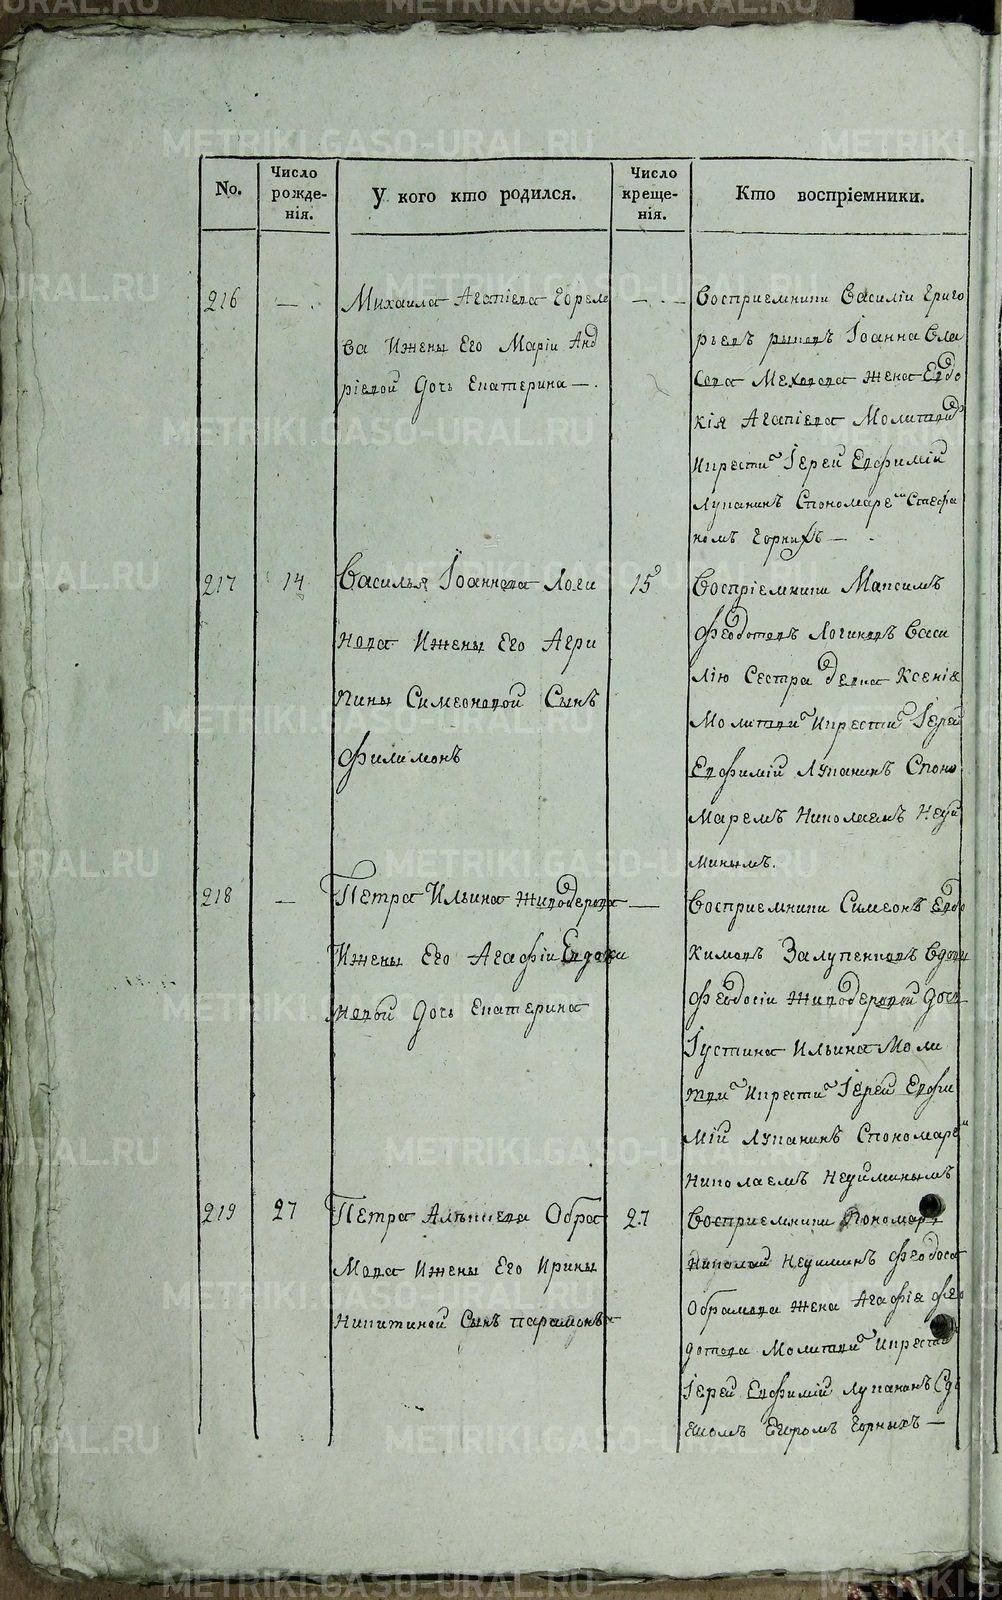 METRIKI.GASO-URAL.RU
No.
Число рожде-нія.
У кого кто родился.
Число креще-нія.
Кто воспріемники.
216
Михаила Агапіева Гореле
ва Ижены Его Маріи Анд
ріевой Дочь Екатерина —
Восприемники Василіи Григо
рьевъ Іоанна Вла
сова жена Евдо
кія Агапіева Молитвой
Икрести Іерей Евфимій
Лупанинъ Спономаремъ Стефа
номъ Горныхъ —
217
14
Василья Іоаннова Логи
нова Ижены Его Агри
пины Симеоновой Сынъ
Филимонъ
15
Воспріемники Максимъ
Феодотовъ Логиновъ Васи
лію Сестра девка Ксенія
Молитви Икрести Іерей
Евфимій Лупанинъ Споно
маремъ Николаемъ Неуй
минымъ.
218
—
Петра Ильина Живодерова
Ижены Его Агафіи Евдоки
мовой Дочь Екатерина
—
Восприемники Симеонъ Евдо
кимовъ вдовы
Феодосіи Живодеровой Дочь
Іустина Ильина Моли
тви Икрести Іерей Евфи
мій Лупанинъ Спономаре
Николаемъ Неуйминымъ
219
27
Петра Алексіева Обра
мова Ижены Его Ирины
Никитиной Сынъ парамонъ
27
Восприемники Пономарь
Николай Неуиминъ Феодоса
Обрамова жена Агафія Фео
дотова Молитви Икрести
Іерей Евфимій Лупанинъ Сдь
ячкомъ Егоромъ Горныхъ —